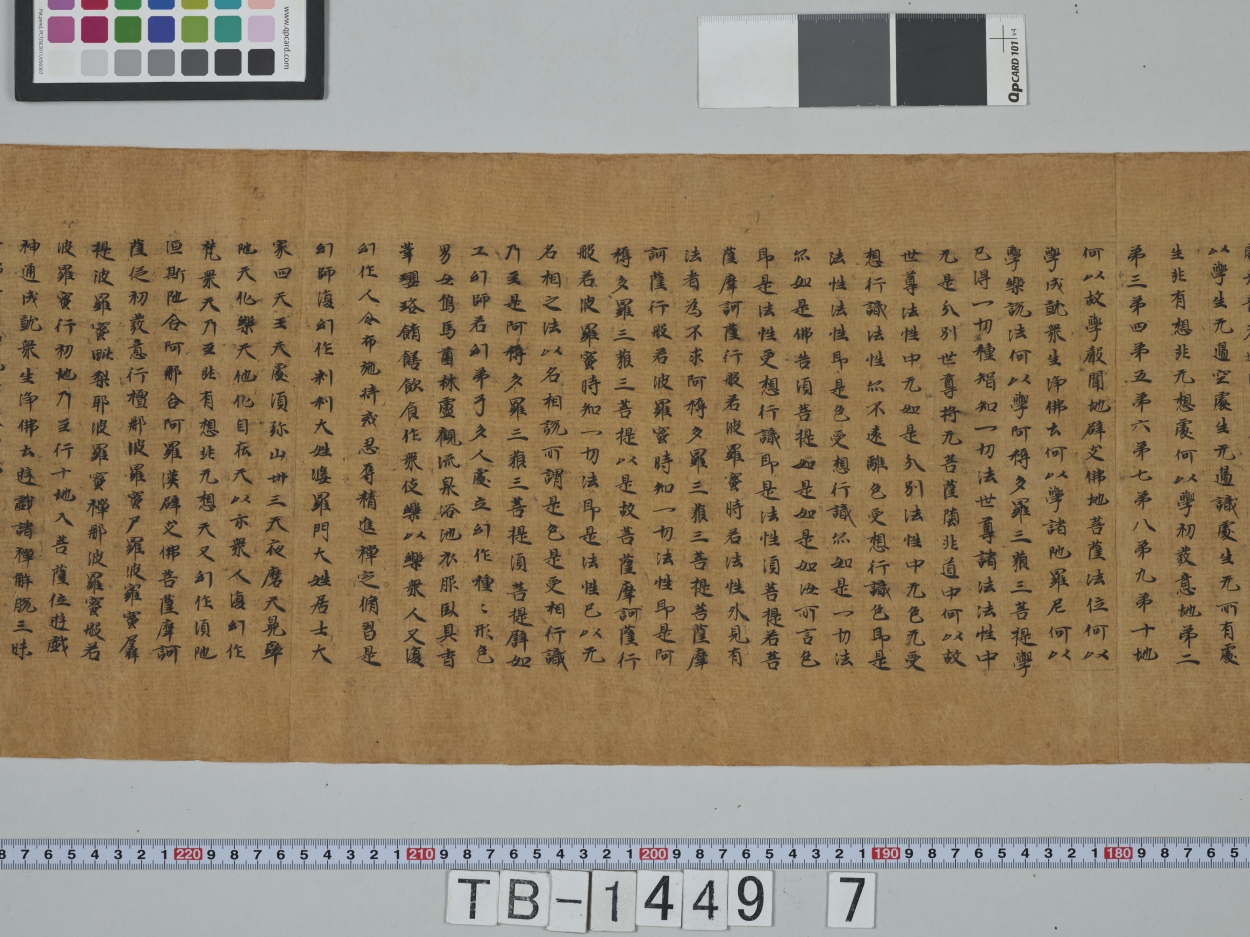 以學生无邊空處生无邊識處生无所有處
生非有想非无想處何以學初發意地第二
第三第四第五第六第七第八第九第十地
何以故學聲聞地辟支佛地菩薩法位何以
學成就衆生淨佛土何以學諸陀羅尼何以
學樂說法何以學阿耨多羅三藐三菩提學
已得一切種智知一切法世尊諸法法性中
无是分別世尊將无菩薩墮非道中何以故
世尊法性中无如是分別法性中无色无受
想行識法性亦不遠離色受想行識色即是
法性法性即是色受想行識亦如是一切法
亦如是佛告須菩提如是如是如汝所言色
即是法性受想行識即是法性須菩提若菩
薩摩訶薩行般若波羅蜜時若法性外見有
法者為不求阿耨多羅三藐三菩提菩薩摩
訶薩行般若波羅蜜時知一切法性即是阿
耨多羅三藐三菩提以是故菩薩摩訶薩行
般若波羅蜜時知一切法即是法性已以无
名相之法以名相說所謂是色是受相行識
乃至是阿耨多羅三藐三菩提須菩提譬如
工幻師若幻弟子多人處立幻作種〻形色
男女鳥馬薗林盧觀流泉浴池衣服臥具香
華瓔珞餚饍飲食作衆伎樂以樂衆人又復
幻作人令布施持戒忍辱精進禪定脩習是
幻師復幻作刹利大姓婆羅門大姓居士大
家四天王天處須弥山卅三天夜磨天兜率
陀天化樂天他化自在天以示衆人復幻作
梵衆天乃至非有想非无想天又幻作須陀
洹斯陀含阿那含阿羅漢辟支佛菩薩摩訶
薩從初發意行檀那波羅蜜尸羅波羅蜜羼
提波羅蜜毗梨耶波羅蜜禪那波羅蜜般若
波羅蜜行初地乃至行十地入菩薩位遊戲
神通成就衆生淨佛土遊戲諸禪解脫三昧
www.qpcard.com
QpCARD 101 v4
8 7 6 5 4 3 2 1 220 9 8 7 6 5 4 3 2 1 210 9 8 7 6 5 4 3 2 1 200 9 8 7 6 5 4 3 2 1 190 9 8 7 6 5 4 3 2 1 180 9 8 7 6 5
TB-1449 7